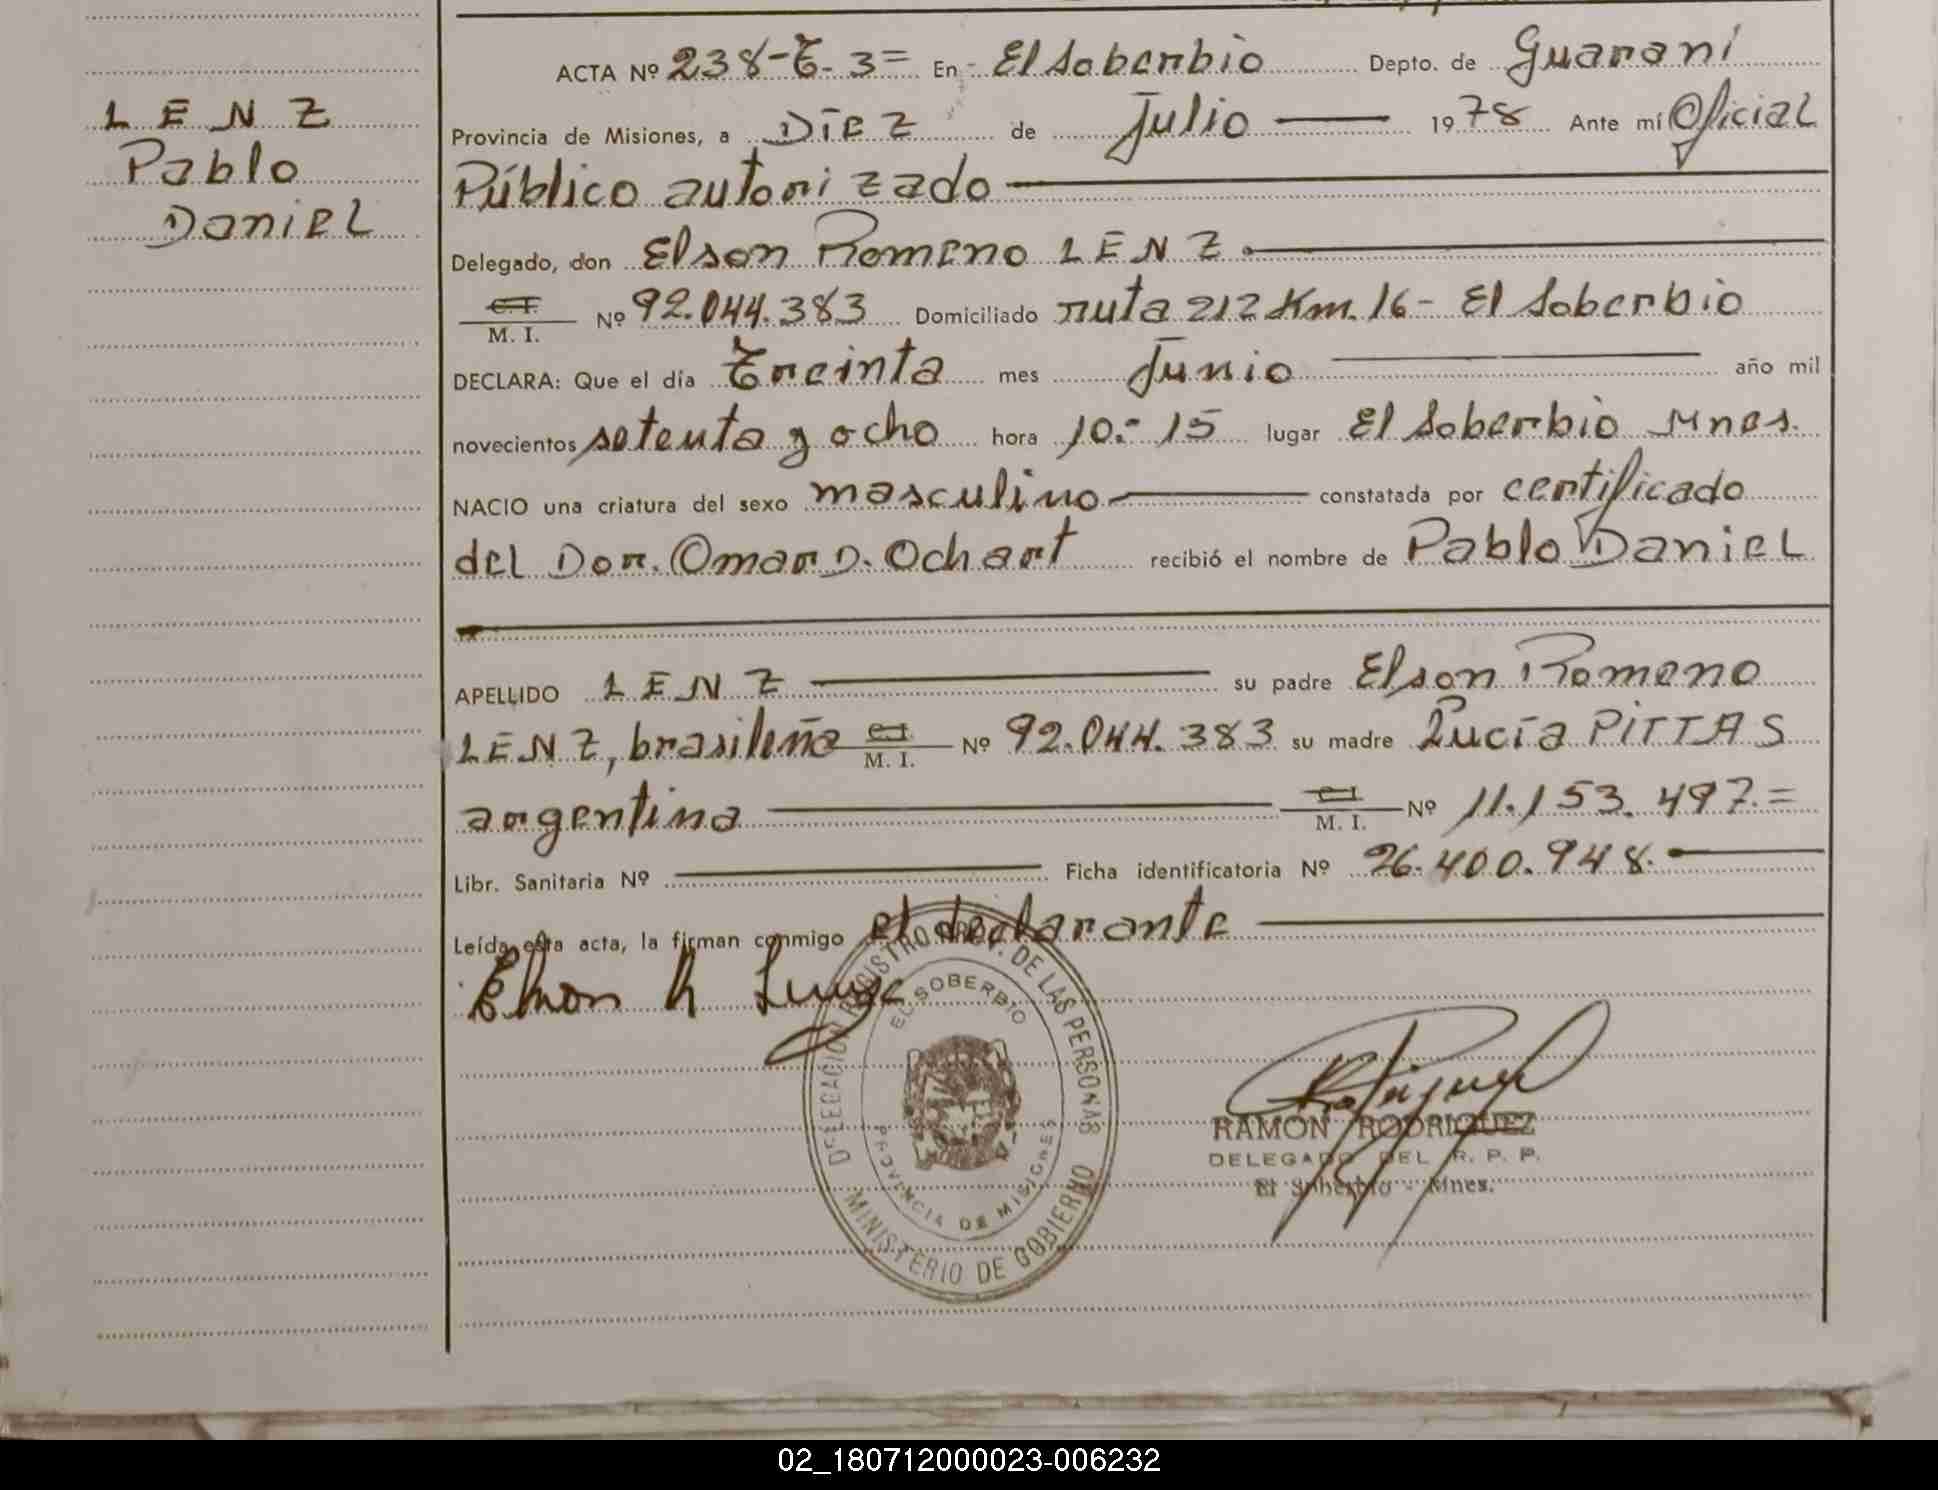 LENZ
Pablo
Daniel
ACTA Nº 238-T. 3= En - El Soberbio Depto. de Guaraní
Provincia de Misiones, a Diez de Julio 1978 Ante mí Oficial
Público autorizado
Delegado, don Elson Romeno LENZ
C.I.
M. I. Nº 92.044.383 Domiciliado ruta 212 Km. 16- El Soberbio
DECLARA: Que el día Treinta mes Junio año mil
novecientos setenta y ocho hora 10:- 15 lugar El Soberbio Mnes.
NACIO una criatura del sexo masculino constatada por certificado
del Dor. Omar D. Ochart recibió el nombre de Pablo Daniel
APELLIDO LENZ su padre Elson Romeno
LENZ, brasileño C.I. M. I. Nº 92.044.383 su madre Lucía PITTAS
argentina C.I. M. I. Nº 11.153.497.=
Libr. Sanitaria Nº Ficha identificatoria Nº 26.400.948.
Leída esta acta, la firman conmigo el declarante
DELEGACION REGISTRO PROV. DE LAS PERSONAS
EL SOBERBIO
PROVINCIA DE MISIONES
MINISTERIO DE GOBIERNO
RAMON RODRIGUEZ
DELEGADO DEL R. P. P.
El Soberbio - Mnes.
02_180712000023-006232